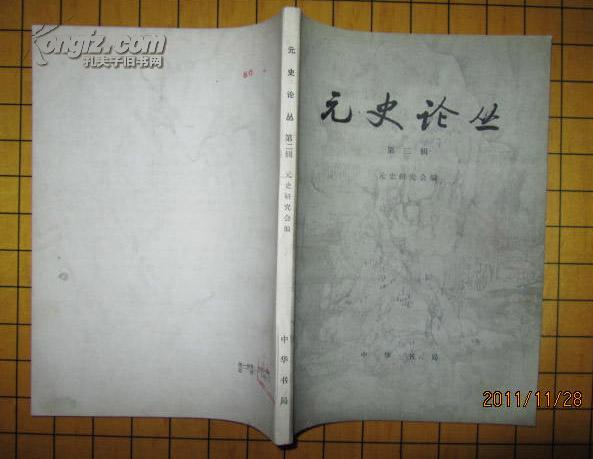 Kongfz.com
孔夫子旧书网
元史论丛 第二辑 元史研究会编
中华书局
元史论丛
第二辑
元史研究会编
中华书局
2011/11/28